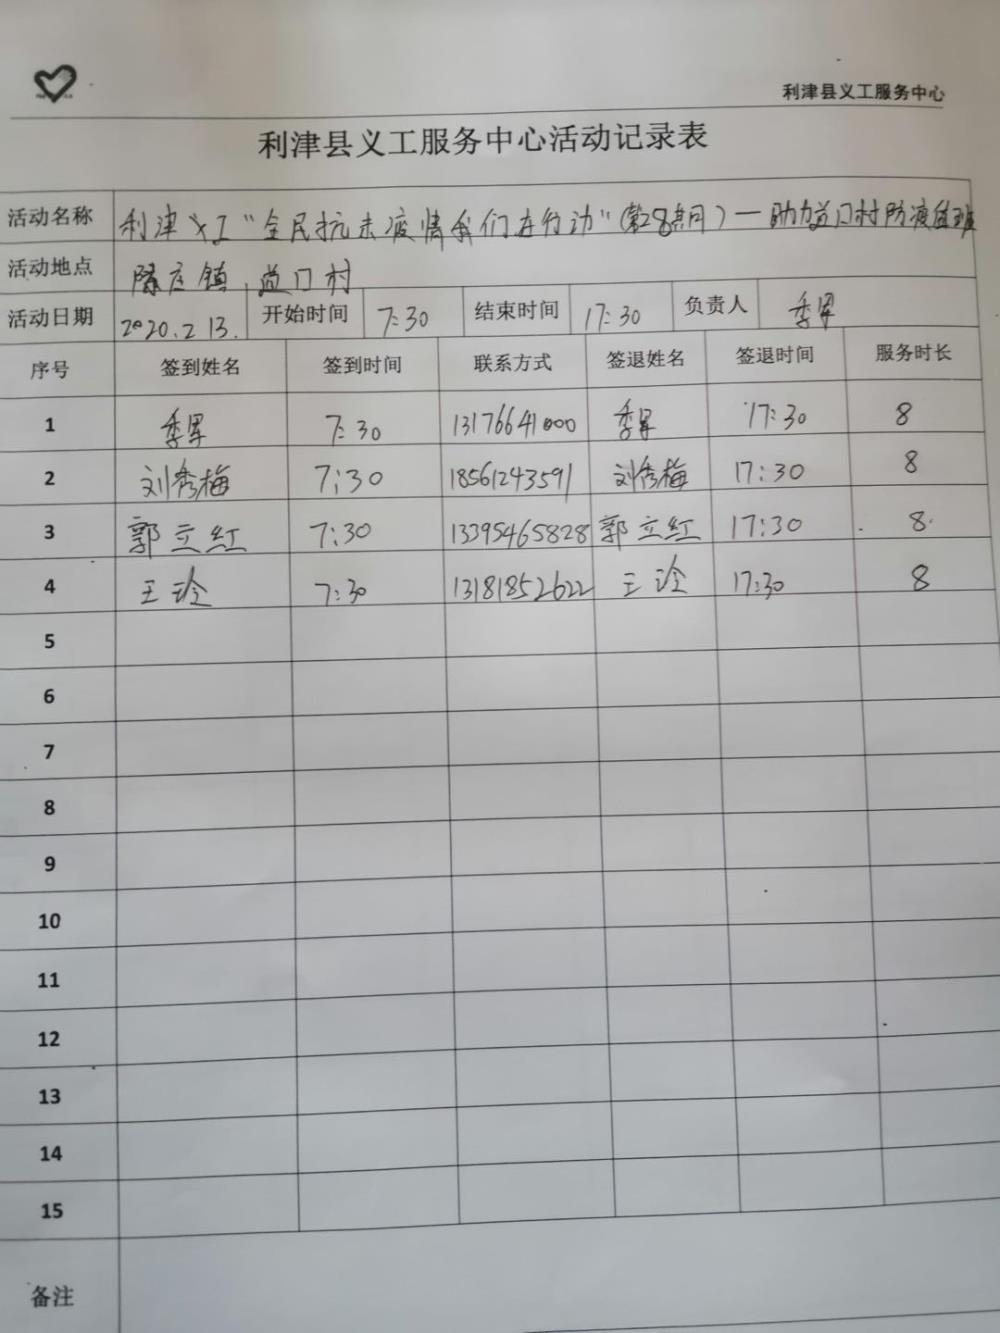 利津县义工服务中心
利津县义工服务中心活动记录表
活动名称 利津义工“全民抗击疫情我们在行动”(第28期)—助力 门村防疫值班
活动地点 陈庄镇 门村
活动日期 2020.2 13. 开始时间 7:30 结束时间 17:30 负责人 季军
序号 签到姓名 签到时间 联系方式 签退姓名 签退时间 服务时长
1 季军 7:30 13176641000 季军 17:30 8
2 刘秀梅 7:30 18561243591 刘秀梅 17:30 8
3 郭立红 7:30 13395465828 郭立红 17:30 8
4 王玲 7:30 13181852622 王玲 17:30 8
5
6
7
8
9
10
11
12
13
14
15
备注